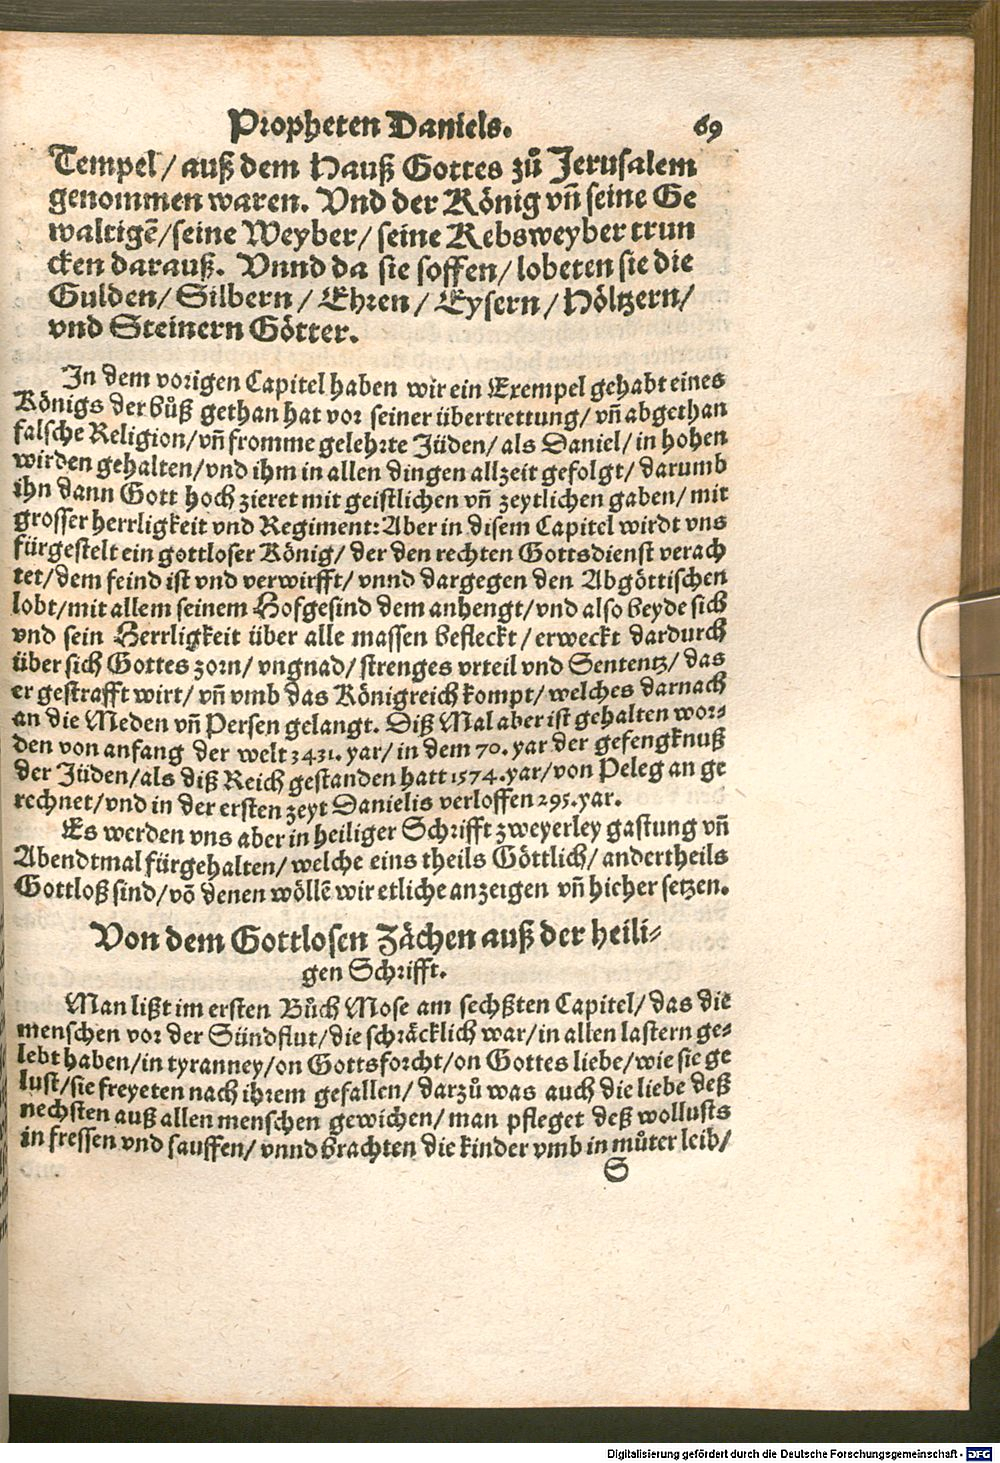 Propheten Daniels. 69
Tempel/ auß dem Hauß Gottes zů Jerusalem
genommen waren. Vnd der König vñ seine Ge
waltigẽ/seine Weyber/ seine Kebsweyber trun
cken darauß. Vnnd da sie soffen/ lobeten sie die
Gulden/ Silbern/ Ehren/ Eysern/ Höltzern/
vnd Steinern Götter.
In dem vorigen Capitel haben wir ein Exempel gehabt eines
Königs der bůß gethan hat vor seiner übertrettung/ vñ abgethan
falsche Religion/vñ fromme gelehrte Jüden/ als Daniel/ in hohen
wirden gehalten/vnd ihm in allen dingen allzeit gefolgt/ darumb
ihn dann Gott hoch zieret mit geistlichen vñ zeytlichen gaben/ mit
grosser herrligkeit vnd Regiment: Aber in disem Capitel wirdt vns
fürgestelt ein gottloser König/ der den rechten Gottsdienst verach
tet/dem feind ist vnd verwirfft/ vnnd dargegen den Abgöttischen
lobt/mit allem seinem Hofgesind dem anhengt/vnd also beyde sich
vnd sein Herrligkeit über alle massen befleckt/ erweckt dardurch
über sich Gottes zorn/ vngnad/ strenges vrteil vnd Sententz/ das
er gestrafft wirt/ vñ vmb das Königreich kompt/ welches darnach
an die Meden vñ Persen gelangt. Diß Mal aber ist gehalten wor-
den von anfang der welt 3431. yar/ in dem 70. yar der gefengknuß
der Jüden/als diß Reich gestanden hatt 1574. yar/von Peleg an ge
rechnet/vnd in der ersten zeyt Danielis verloffen 295. yar.
Es werden vns aber in heiliger Schrifft zweyerley gastung vñ
Abendtmal fürgehalten/ welche eins theils Göttlich/ andertheils
Gottloß sind/võ denen wöllẽ wir etliche anzeigen vñ hieher setzen.
Von dem Gottlosen Zächen auß der heili-
gen Schrifft.
Man lißt im ersten Bůch Mose am sechßten Capitel/ das die
menschen vor der Sündflut/die schräcklich war/in allen lastern ge-
lebt haben/in tyranney/on Gottsforcht/on Gottes liebe/wie sie ge
lust/sie freyeten nach ihrem gefallen/ darzů was auch die liebe deß
nechsten auß allen menschen gewichen/ man pfleget deß wollusts
in fressen vnd sauffen/ vnnd brachten die kinder vmb in můter leib/
S
Digitalisierung gefördert durch die Deutsche Forschungsgemeinschaft - DFG